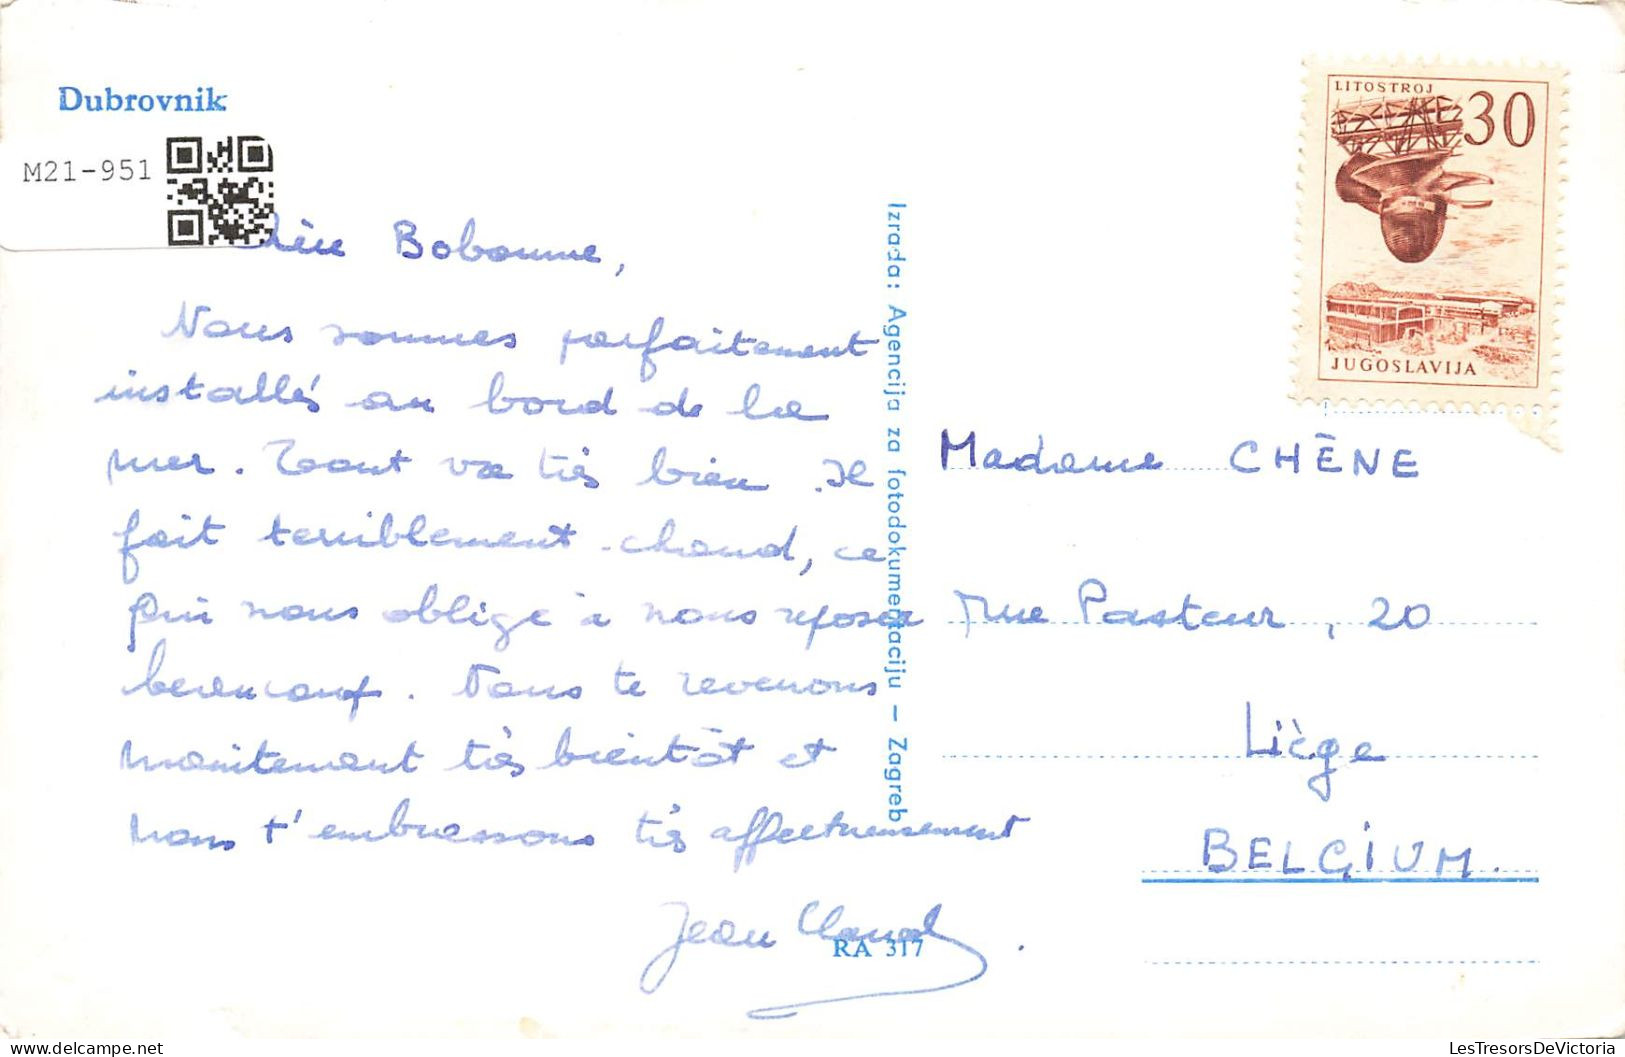 Dubrovnik
M21-951
Chère Bobonne,
Nous sommes parfaitement
installés au bord de la
mer. Tout va très bien. Il
fait terriblement chaud, ce
qui nous oblige à nous reposer
beaucoup. Nous te revenons
maintenant très bientôt et
nous t'embrassons très affectueusement
Jean Claude.
RA 317
Izrada: Agencija za fotodokumentaciju – Zagreb
LITOSTROJ
30
JUGOSLAVIJA
Madame CHÊNE
rue Pasteur, 20
Liège
BELGIUM.
delcampe.net
LesTresorsDeVictoria